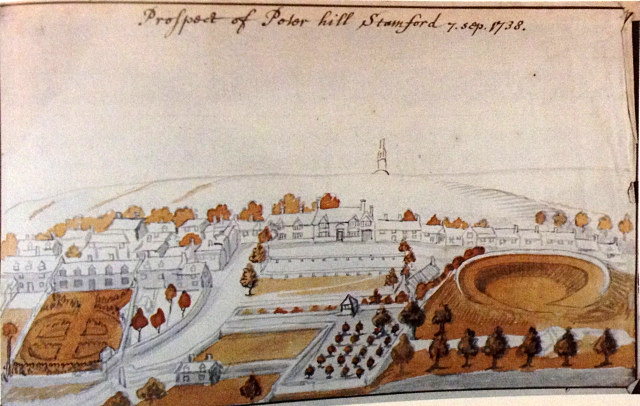 Prospect of Peter hill Stamford 7. sep. 1738.